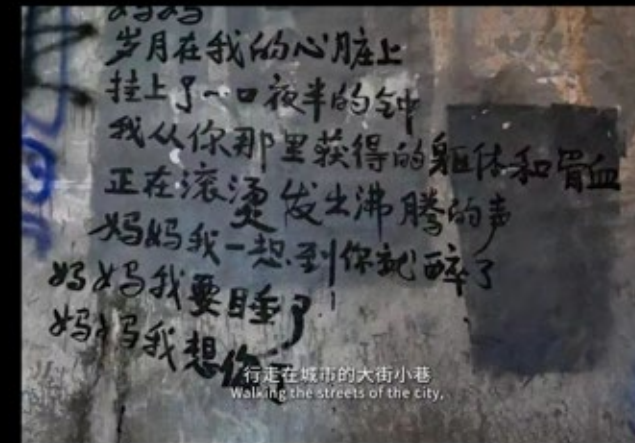 妈妈
岁月在我的心脏上
挂上了一口夜半的钟
我从你那里获得的躯体和骨血
正在滚烫发出沸腾的声
妈妈我一想到你就醉了
妈妈我要睡了
妈妈我想你
行走在城市的大街小巷
Walking the streets of the city,